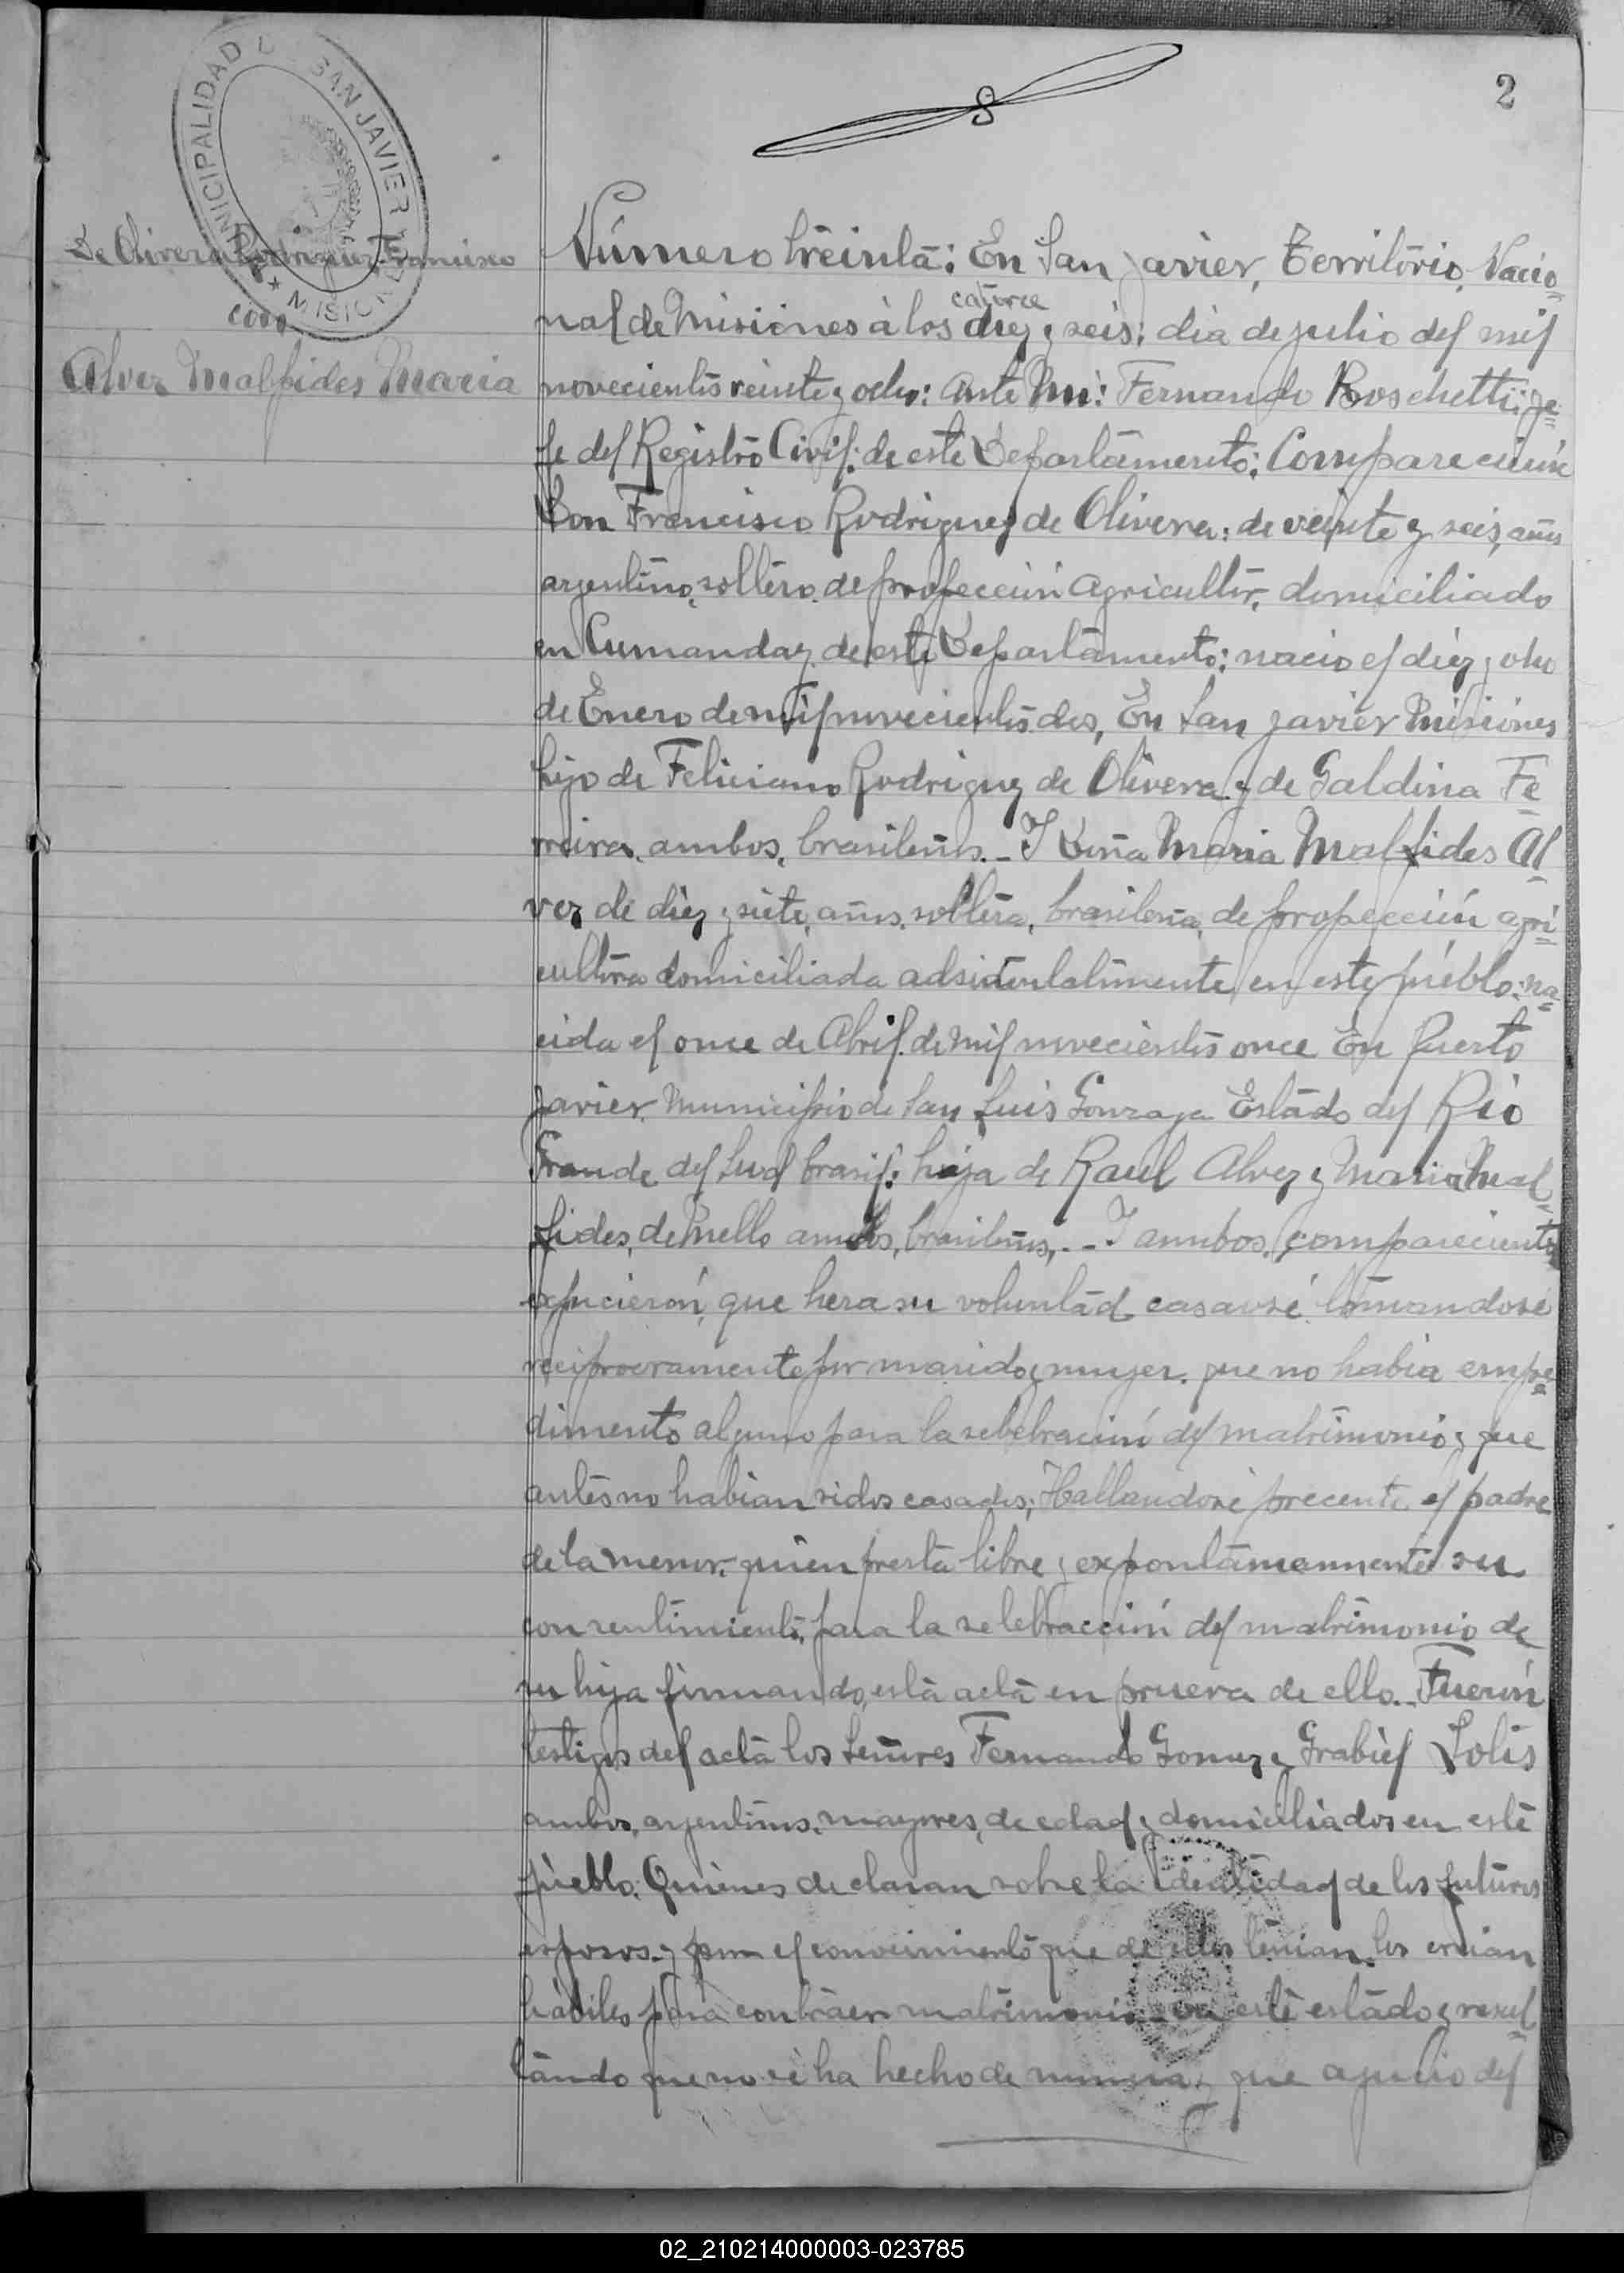 2
MUNICIPALIDAD DE SAN JAVIER
★ MISIONES ★
De Olivera Rodriguez Francisco
con
Alvez Malfides Maria
Número treinta: En San Javier, Territorio Nacio=
nal de Misiones à los diez y seis: dia de julio del mil
catorce
novecientos veinte y ocho: Ante Mi: Fernando Boschetti: je=
fe del Registro Civil: de este Departamento: Comparecierón
Don Francisco Rodriguez de Olivera: de veinte y seis, años
argentino, soltero, de profección Agricultor, domiciliado
en Cumanday de este Departamento: nacio el diez y oho
de Enero de mil novecientos dos, En San Javier Misiones
hijo de Feliciano Rodriguez de Olivera y de Galdina Fe=
rreira, ambos, brasileños._ I Doña Maria Malfides Al=
vez de diez y siete, años, soltera, brasileña, de profección agri=
cultora domiciliada adsidentalmente en este pueblo: na=
cida el once de Abril de mil novecientos once En Puerto
Javier Municipio de San Luis Gonzaga Estado del Rio
Grande del Sud brasil: hija de Raul Alvez y Maria Mal=
fides, de Mello ambos, brasileños,._ I ambos, comparecientes
expucierón, que hera su voluntad casarsé tomandosé
reciprocramente por marido y mujer. que no habia empe=
dimento alguno para la selebración del matrimonio y que
antes no habian sidos casados; Hallandosé precente el padre
de la menor, quien presta libre y expontámeanmente su
consentimiento, para la selebracción del matrimonio de
su hija firmando, esta acta en prueva de ello._ Fuerón
testigos del acta los Señores Fernando Gomez y Grabiel Solis
ambos, argentinos, mayores, de edad y domiciliados en esté
pueblo. Quienes declaran sobre la identidad de los futuros
esposos. y por el conocimiento que de ellos tenian, los creian
habiles para contraer matrimonio en este estado y resul=
tando que no sé ha hecho de y que a juicio del
02_210214000003-023785